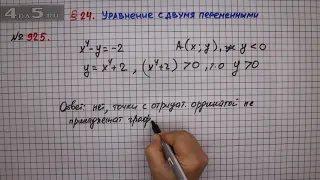 4 А 5 ru
§ 24. Уравнение с двумя переменными
№ 925.
x⁴-y=-2 A(x;y), y<0
y=x⁴+2, (x⁴+2)>0, то y>0
Ответ: нет, точки с отрицат. ординатой не
принадлежат граф